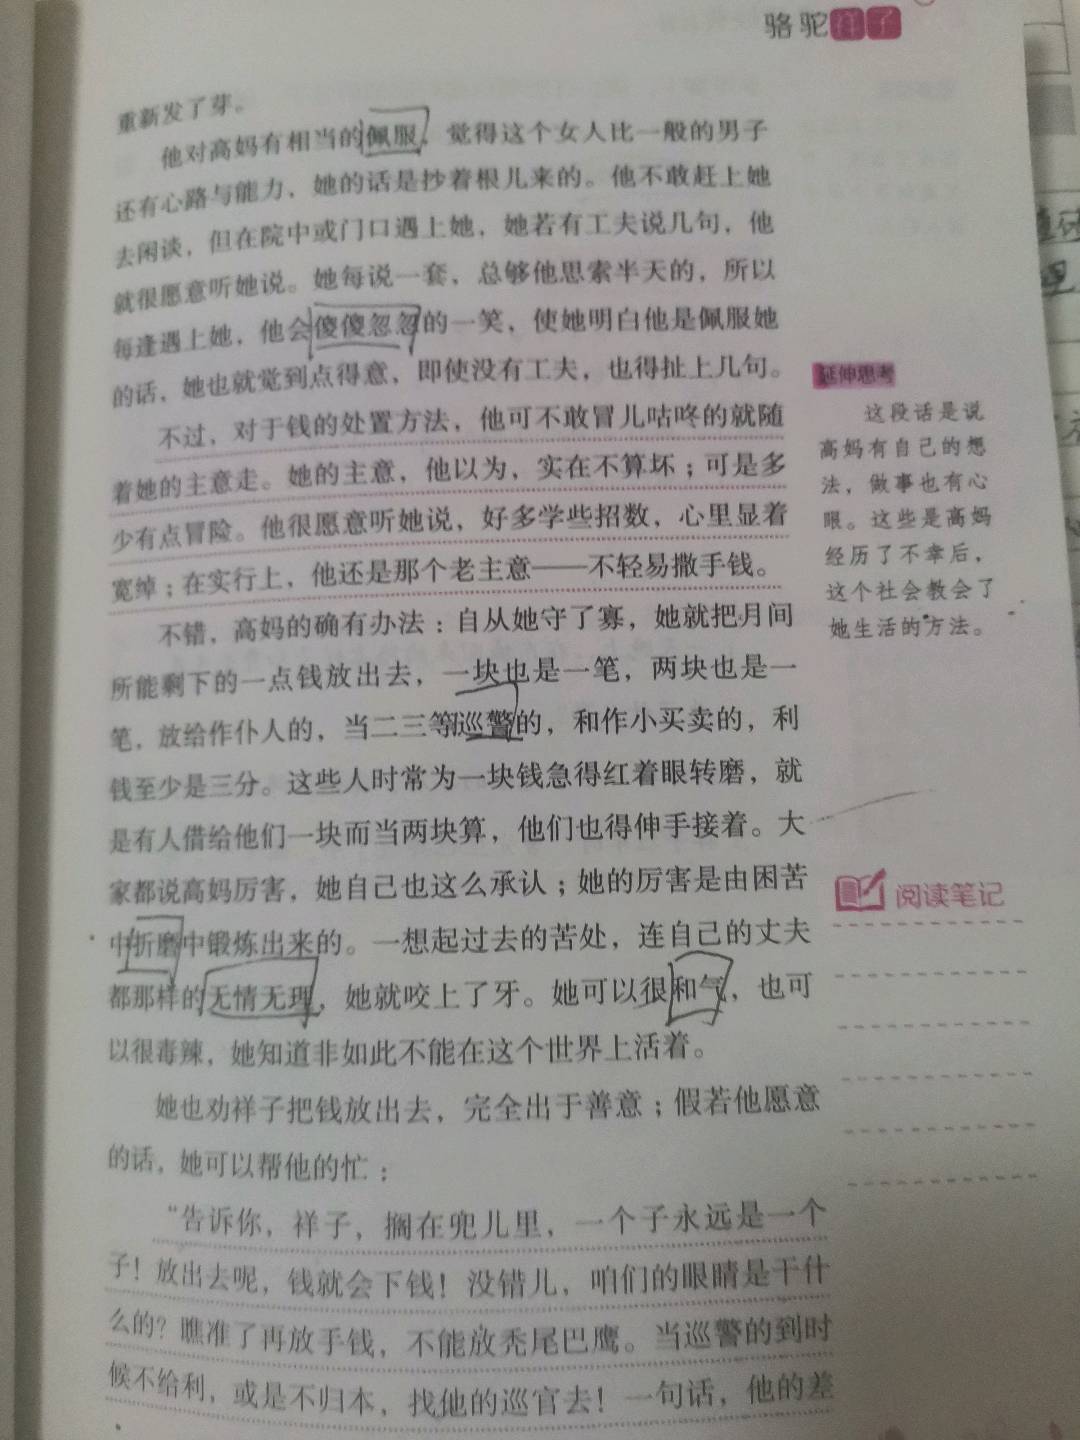 骆驼祥子
重新发了芽。
他对高妈有相当的佩服，觉得这个女人比一般的男子
还有心路与能力，她的话是抄着根儿来的。他不敢赶上她
去闲谈，但在院中或门口遇上她，她若有工夫说几句，他
就很愿意听她说。她每说一套，总够他思索半天的，所以
每逢遇上她，他会傻傻忽忽的一笑，使她明白他是佩服她
的话，她也就觉到点得意，即使没有工夫，也得扯上几句。
不过，对于钱的处置方法，他可不敢冒儿咕咚的就随
着她的主意走。她的主意，他以为，实在不算坏；可是多
少有点冒险。他很愿意听她说，好多学些招数，心里显着
宽绰；在实行上，他还是那个老主意——不轻易撒手钱。
不错，高妈的确有办法：自从她守了寡，她就把月间
所能剩下的一点钱放出去，一块也是一笔，两块也是一
笔，放给作仆人的，当二三等巡警的，和作小买卖的，利
钱至少是三分。这些人时常为一块钱急得红着眼转磨，就
是有人借给他们一块而当两块算，他们也得伸手接着。大
家都说高妈厉害，她自己也这么承认；她的厉害是由困苦
中折磨中锻炼出来的。一想起过去的苦处，连自己的丈夫
都那样的无情无理，她就咬上了牙。她可以很和气，也可
以很毒辣，她知道非如此不能在这个世界上活着。
她也劝祥子把钱放出去，完全出于善意；假若他愿意
的话，她可以帮他的忙：
“告诉你，祥子，搁在兜儿里，一个子永远是一个
子！放出去呢，钱就会下钱！没错儿，咱们的眼睛是干什
么的？瞧准了再放手钱，不能放秃尾巴鹰。当巡警的到时
候不给利，或是不归本，找他的巡官去！一句话，他的差
延伸思考
这段话是说
高妈有自己的想
法，做事也有心
眼。这些是高妈
经历了不幸后，
这个社会教会了
她生活的方法。
阅读笔记